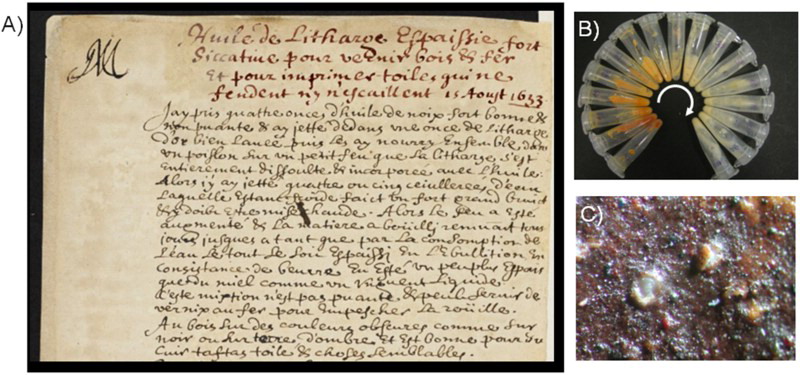 A)
Huile de Litharge Espaissie fort
Siccative pour vernir bois & fer
Et pour imprimer toiles qui ne
fendent ny n'escaillent 15 Aoust 1633
Jay pris quattre onces d'huile de noix fort bonne &
non puante & ay jetté dedans vne once de Litharge
D'or bien lavee puis les ay nourry Ensemble dans
vn poislon sur vn petit feu que la litharge s'est
Entierement dissoulte & incorporee avec l'huile.
Alors jy ay jetté quattre ou cinq ceuilleres d'eau
Laquelle estant froide faict vn fort grand bruit
& doibt estre mise chaude. Alors le feu a esté
augmenté & la matiere a boüilli remuant tous
jours jusques a tant que par la Consomption de
l'eau le tout se soit Espaissi En l'Ebullition En
Consistance de beurre En Esté vn peu plus Espais
que du miel comme vn vnguent liquide
C'este mixtion n'est pas puante & peult servir de
vernix au fer pour empescher la roüille.
Au bois sur des couleurs obscures comme sur
noir ou sur terre d'ombre et est bonne pour
cuir taftas toile & choses semblables.
B)
C)